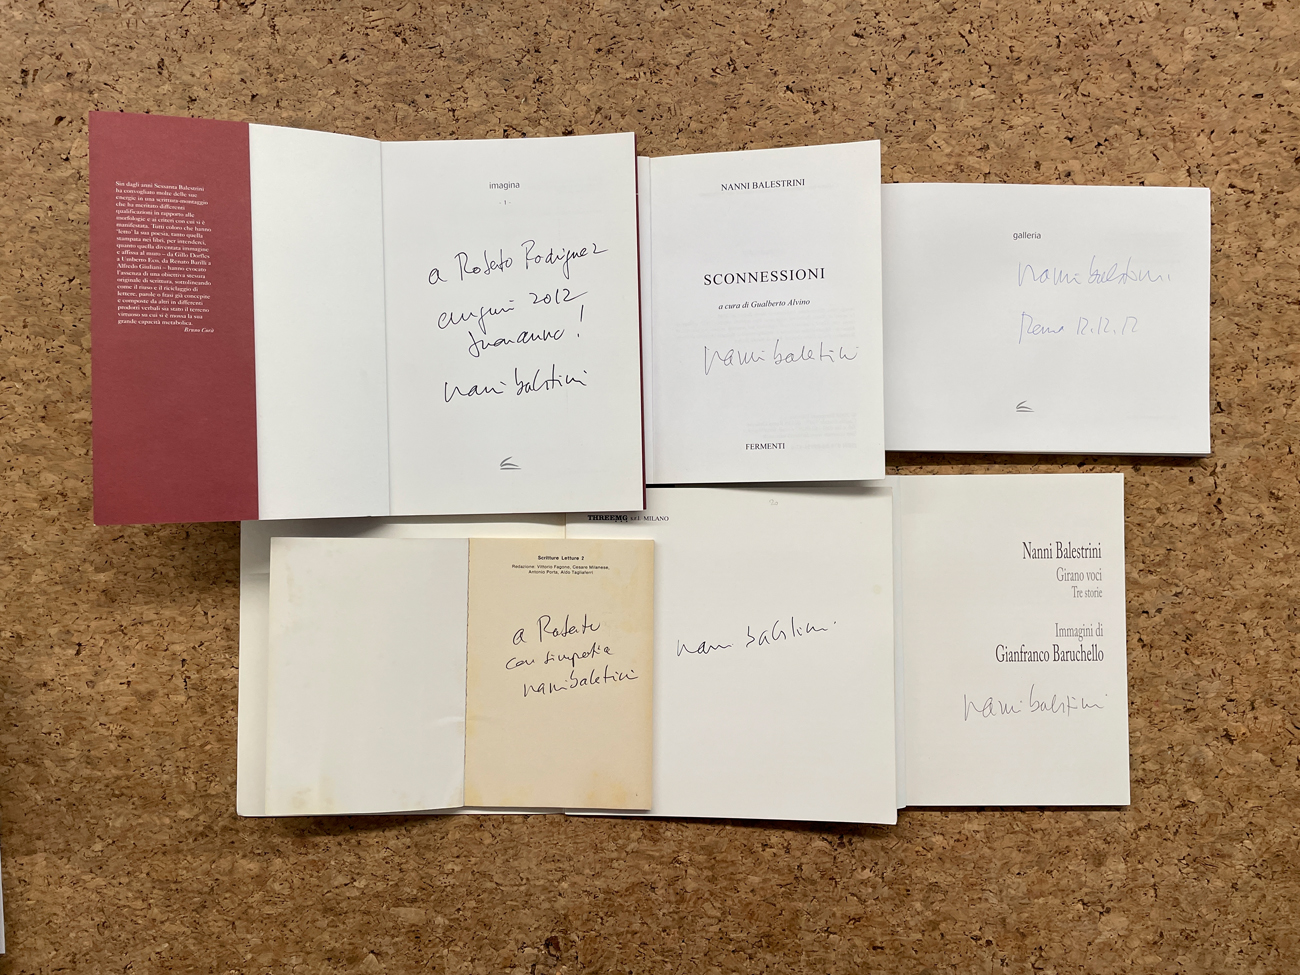 Sin dagli anni Sessanta Balestrini
ha convogliato molte delle sue
energie in una scrittura-montaggio
che ha meritato differenti
qualificazioni in rapporto alle
morfologie e ai criteri con cui si è
manifestata. Tutti coloro che hanno
'letto' la sua poesia, tanto quella
stampata nei libri, per intenderci,
quanto quella diventata immagine
e affissa al muro – da Gillo Dorfles
a Umberto Eco, da Renato Barilli a
Alfredo Giuliani – hanno evocato
l'assenza di una obiettiva stesura
originale di scrittura, sottolineando
come il riuso e il riciclaggio di
lettere, parole o frasi già concepite
e composte da altri in differenti
prodotti verbali sia stato il terreno
virtuoso su cui si è mossa la sua
grande capacità metabolica.
Bruno Corà
imagina
- 1 -
a Roberto Rodriguez
auguri 2012
buon anno!
nanni balestrini
NANNI BALESTRINI
SCONNESSIONI
a cura di Gualberto Alvino
nanni balestrini
FERMENTI
galleria
nanni balestrini
Roma 12.12.12
Scritture Letture 2
Redazione: Vittorio Fagone, Cesare Milanese,
Antonio Porta, Aldo Tagliaferri
a Roberto
con simpatia
nanni balestrini
THREEMG MILANO
nanni balestrini
Nanni Balestrini
Girano voci
Tre storie
Immagini di
Gianfranco Baruchello
nanni balestrini